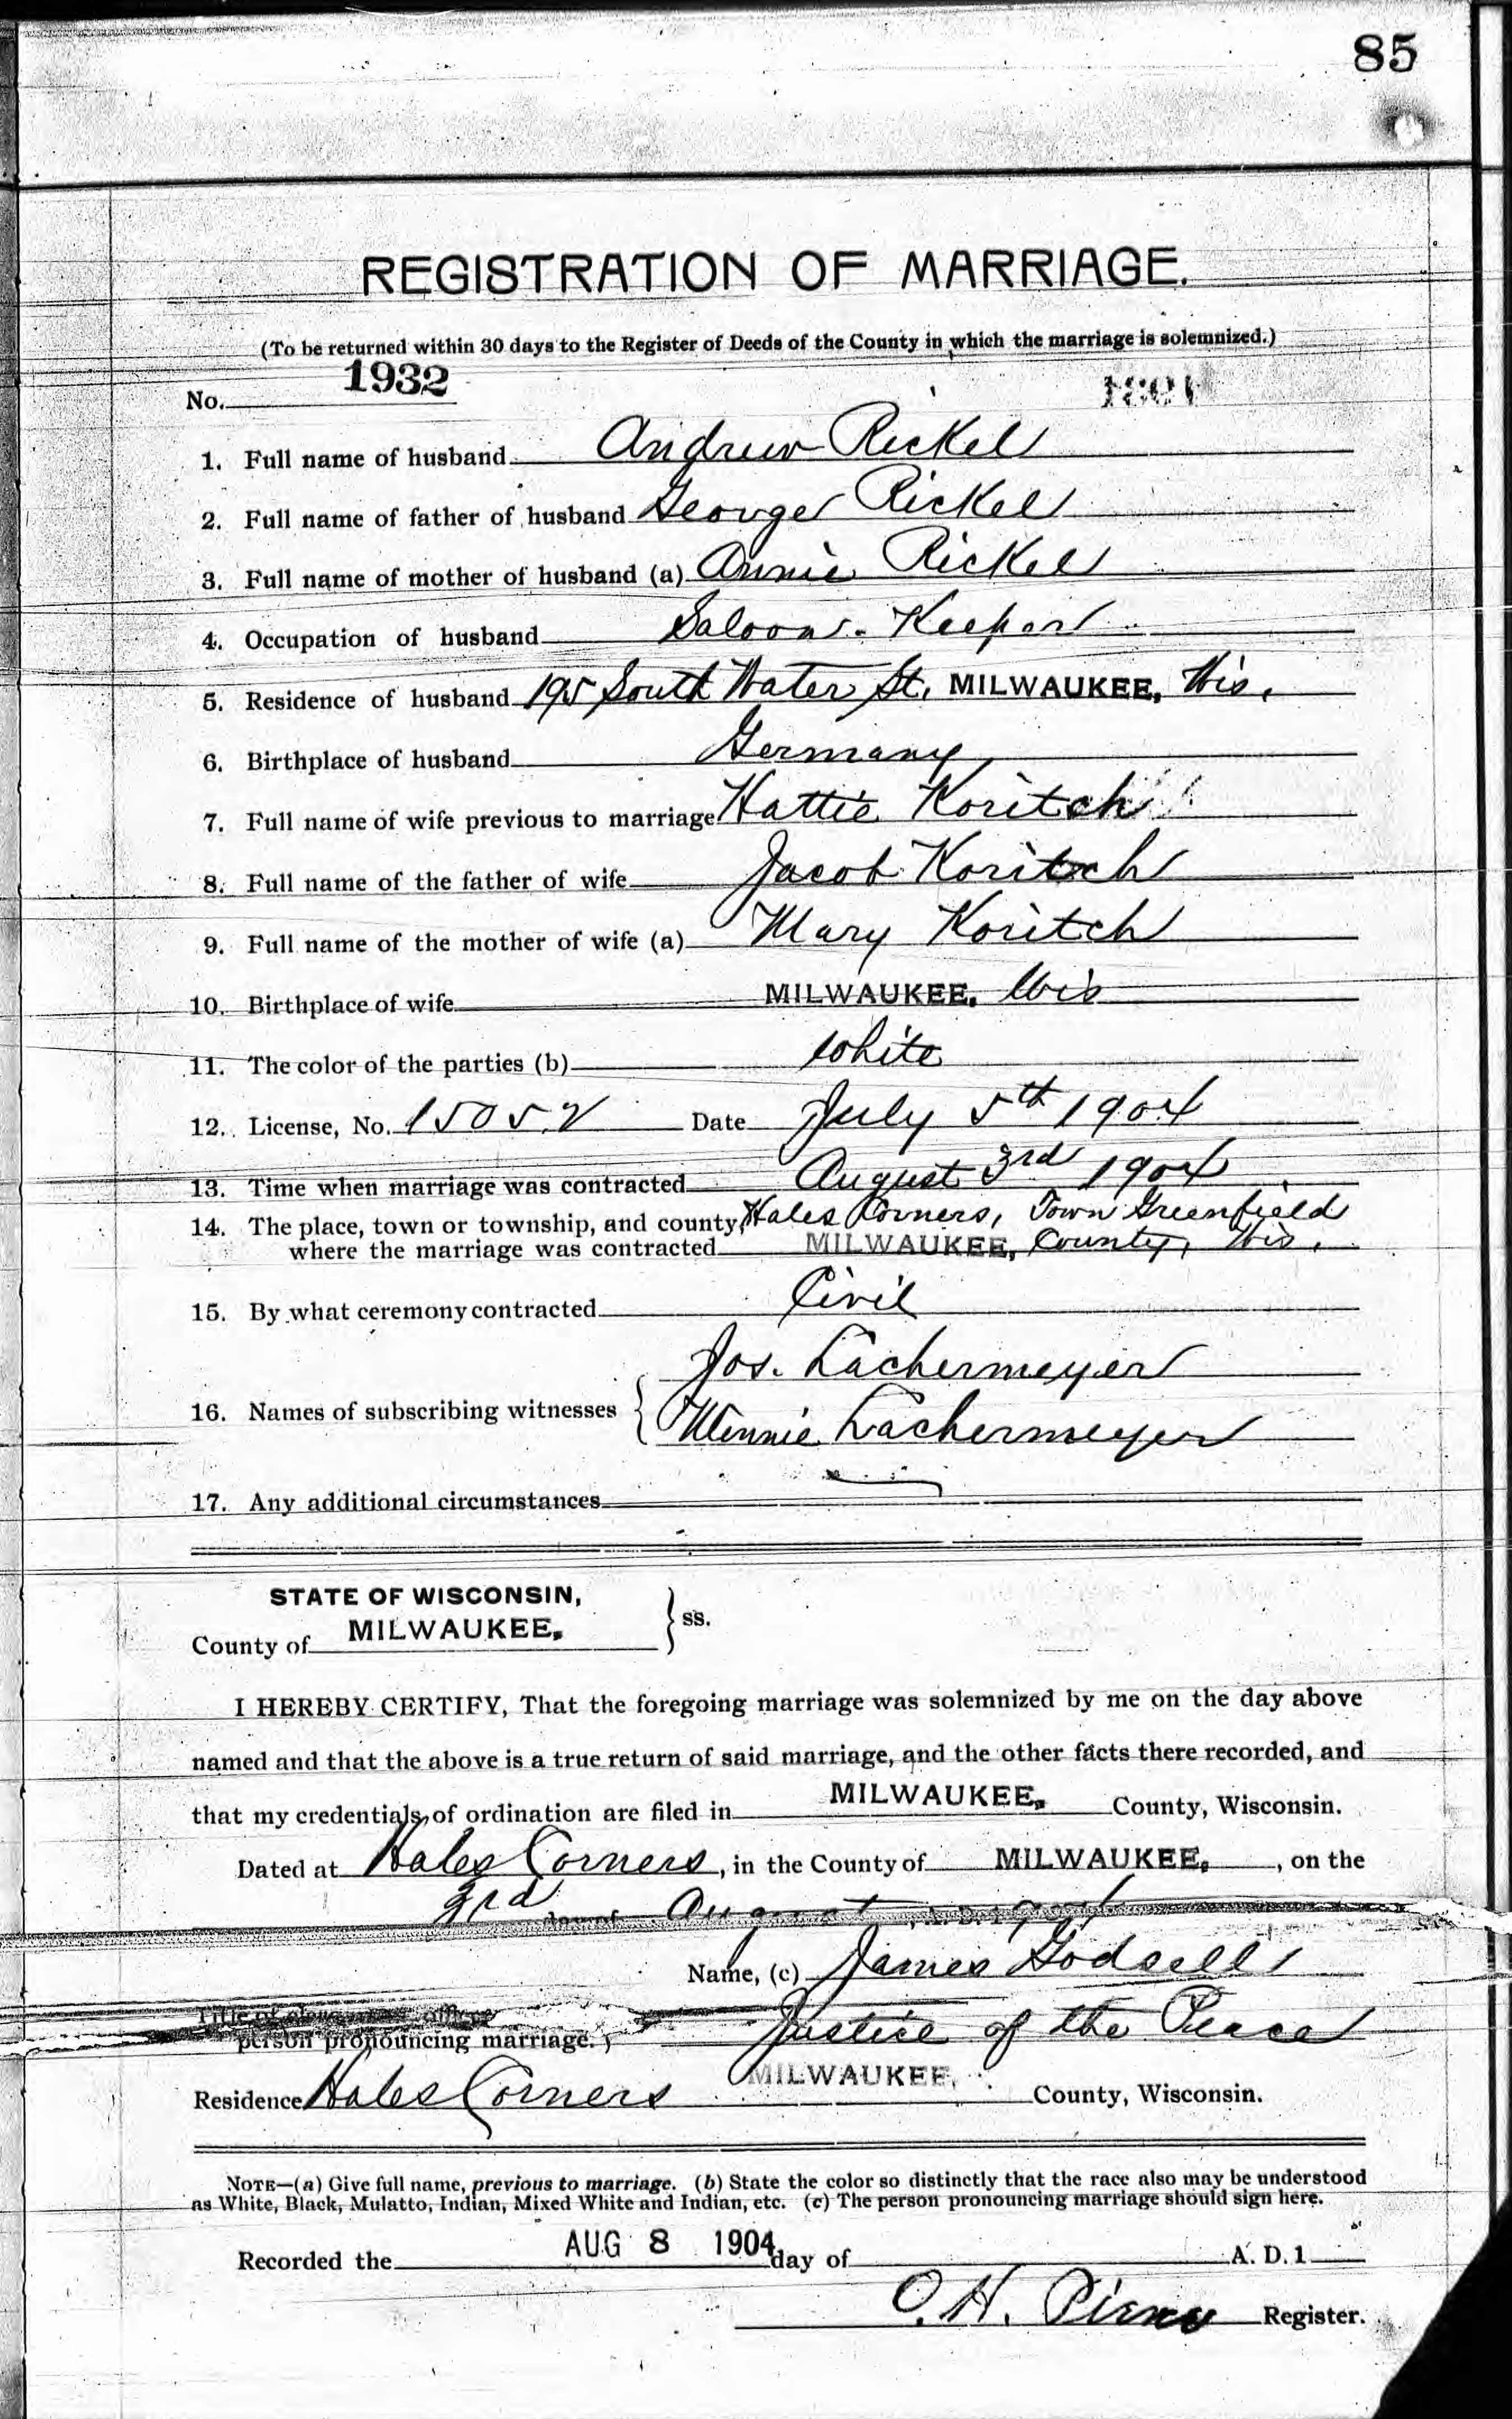 85
REGISTRATION OF MARRIAGE.
(To be returned within 30 days to the Register of Deeds of the County in which the marriage is solemnized.)
No. 1932
1. Full name of husband Andrew Rickel
2. Full name of father of husband George Rickel
3. Full name of mother of husband (a) Annie Rickel
4. Occupation of husband Saloon-Keeper
5. Residence of husband 195 South Water St. MILWAUKEE, Wis.
6. Birthplace of husband Germany
7. Full name of wife previous to marriage Hattie Koritch
8. Full name of the father of wife Jacob Koritch
9. Full name of the mother of wife (a) Mary Koritch
10. Birthplace of wife MILWAUKEE, Wis
11. The color of the parties (b) White
12. License, No. 15052 Date July 5th 1904
13. Time when marriage was contracted August 3rd 1904
14. The place, town or township, and county, Hales Corners, Town Greenfield
where the marriage was contracted MILWAUKEE, County, Wis.
15. By what ceremony contracted Civil
Jos. Lachermeyer
16. Names of subscribing witnesses
Minnie Lachermeyer
17. Any additional circumstances
STATE OF WISCONSIN,
County of MILWAUKEE, ss.
I HEREBY CERTIFY, That the foregoing marriage was solemnized by me on the day above
named and that the above is a true return of said marriage, and the other facts there recorded, and
that my credentials of ordination are filed in MILWAUKEE, County, Wisconsin.
Dated at Hales Corners, in the County of MILWAUKEE, on the
3rd day of August, A. D. 1904
Name, (c) James Godsell
Title of
person pronouncing marriage. Justice of the Peace
Residence Hales Corners MILWAUKEE, County, Wisconsin.
NOTE—(a) Give full name, previous to marriage. (b) State the color so distinctly that the race also may be understood
as White, Black, Mulatto, Indian, Mixed White and Indian, etc. (c) The person pronouncing marriage should sign here.
Recorded the AUG 8 1904 day of A. D. 1
O. H. Register.